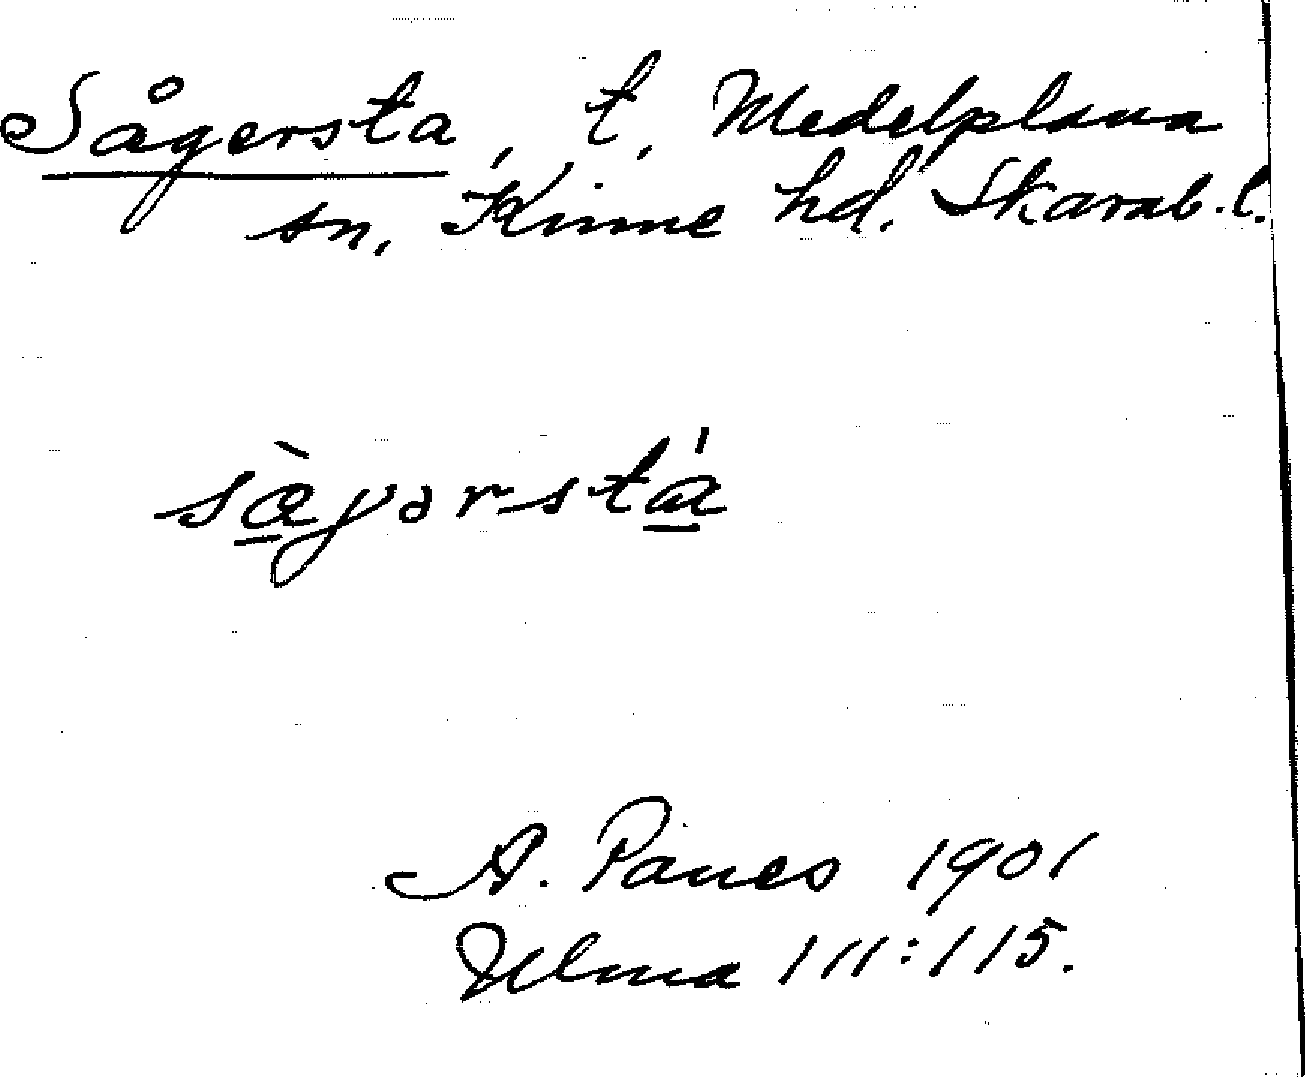 Sågersta, t, Medelplana
sn, Kinne hd. Skarab. l.
sàgərstá
A. Paues 1901
Ulma 111:115.